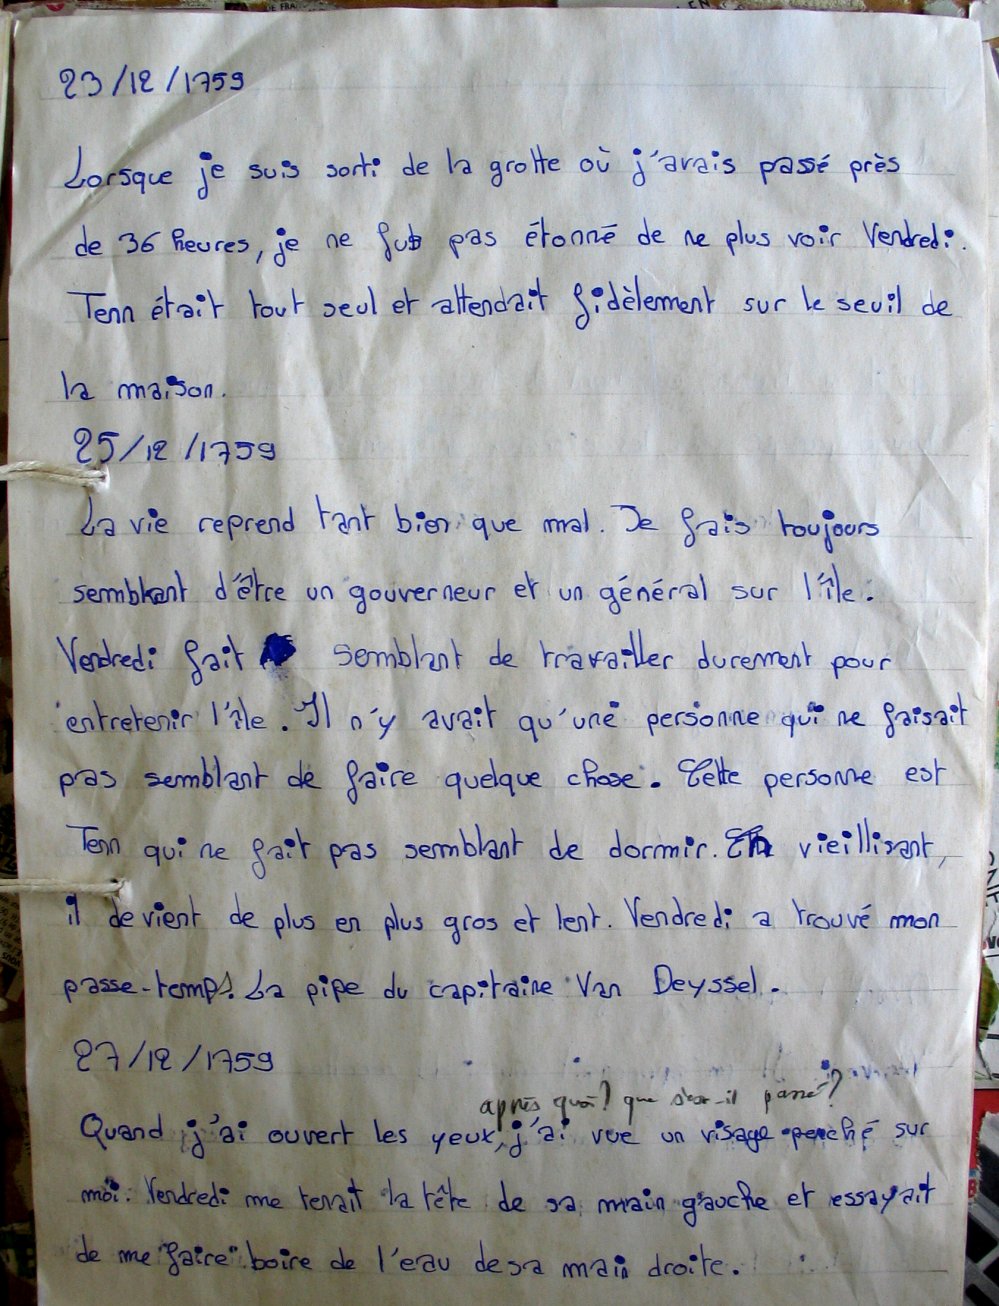 23/12/1759
Lorsque je suis sorti de la grotte où j'avais passé près
de 36 heures, je ne fus pas étonné de ne plus voir Vendredi.
Tenn était tout seul et attendait fidèlement sur le seuil de
la maison.
25/12/1759
La vie reprend tant bien que mal. Je fais toujours
semblant d'être un gouverneur et un général sur l'île.
Vendredi fait semblant de travailler durement pour
entretenir l'île. Il n'y avait qu'une personne qui ne faisait
pas semblant de faire quelque chose. Cette personne est
Tenn qui ne fait pas semblant de dormir. En vieillisant,
il devient de plus en plus gros et lent. Vendredi a trouvé mon
passe-temps. La pipe du capitaine Van Deyssel.
27/12/1759
après quoi? que s'est-il passé?
Quand j'ai ouvert les yeux, j'ai vue un visage penché sur
moi. Vendredi me tenait la tête de sa main gauche et essayait
de me faire boire de l'eau de sa main droite.